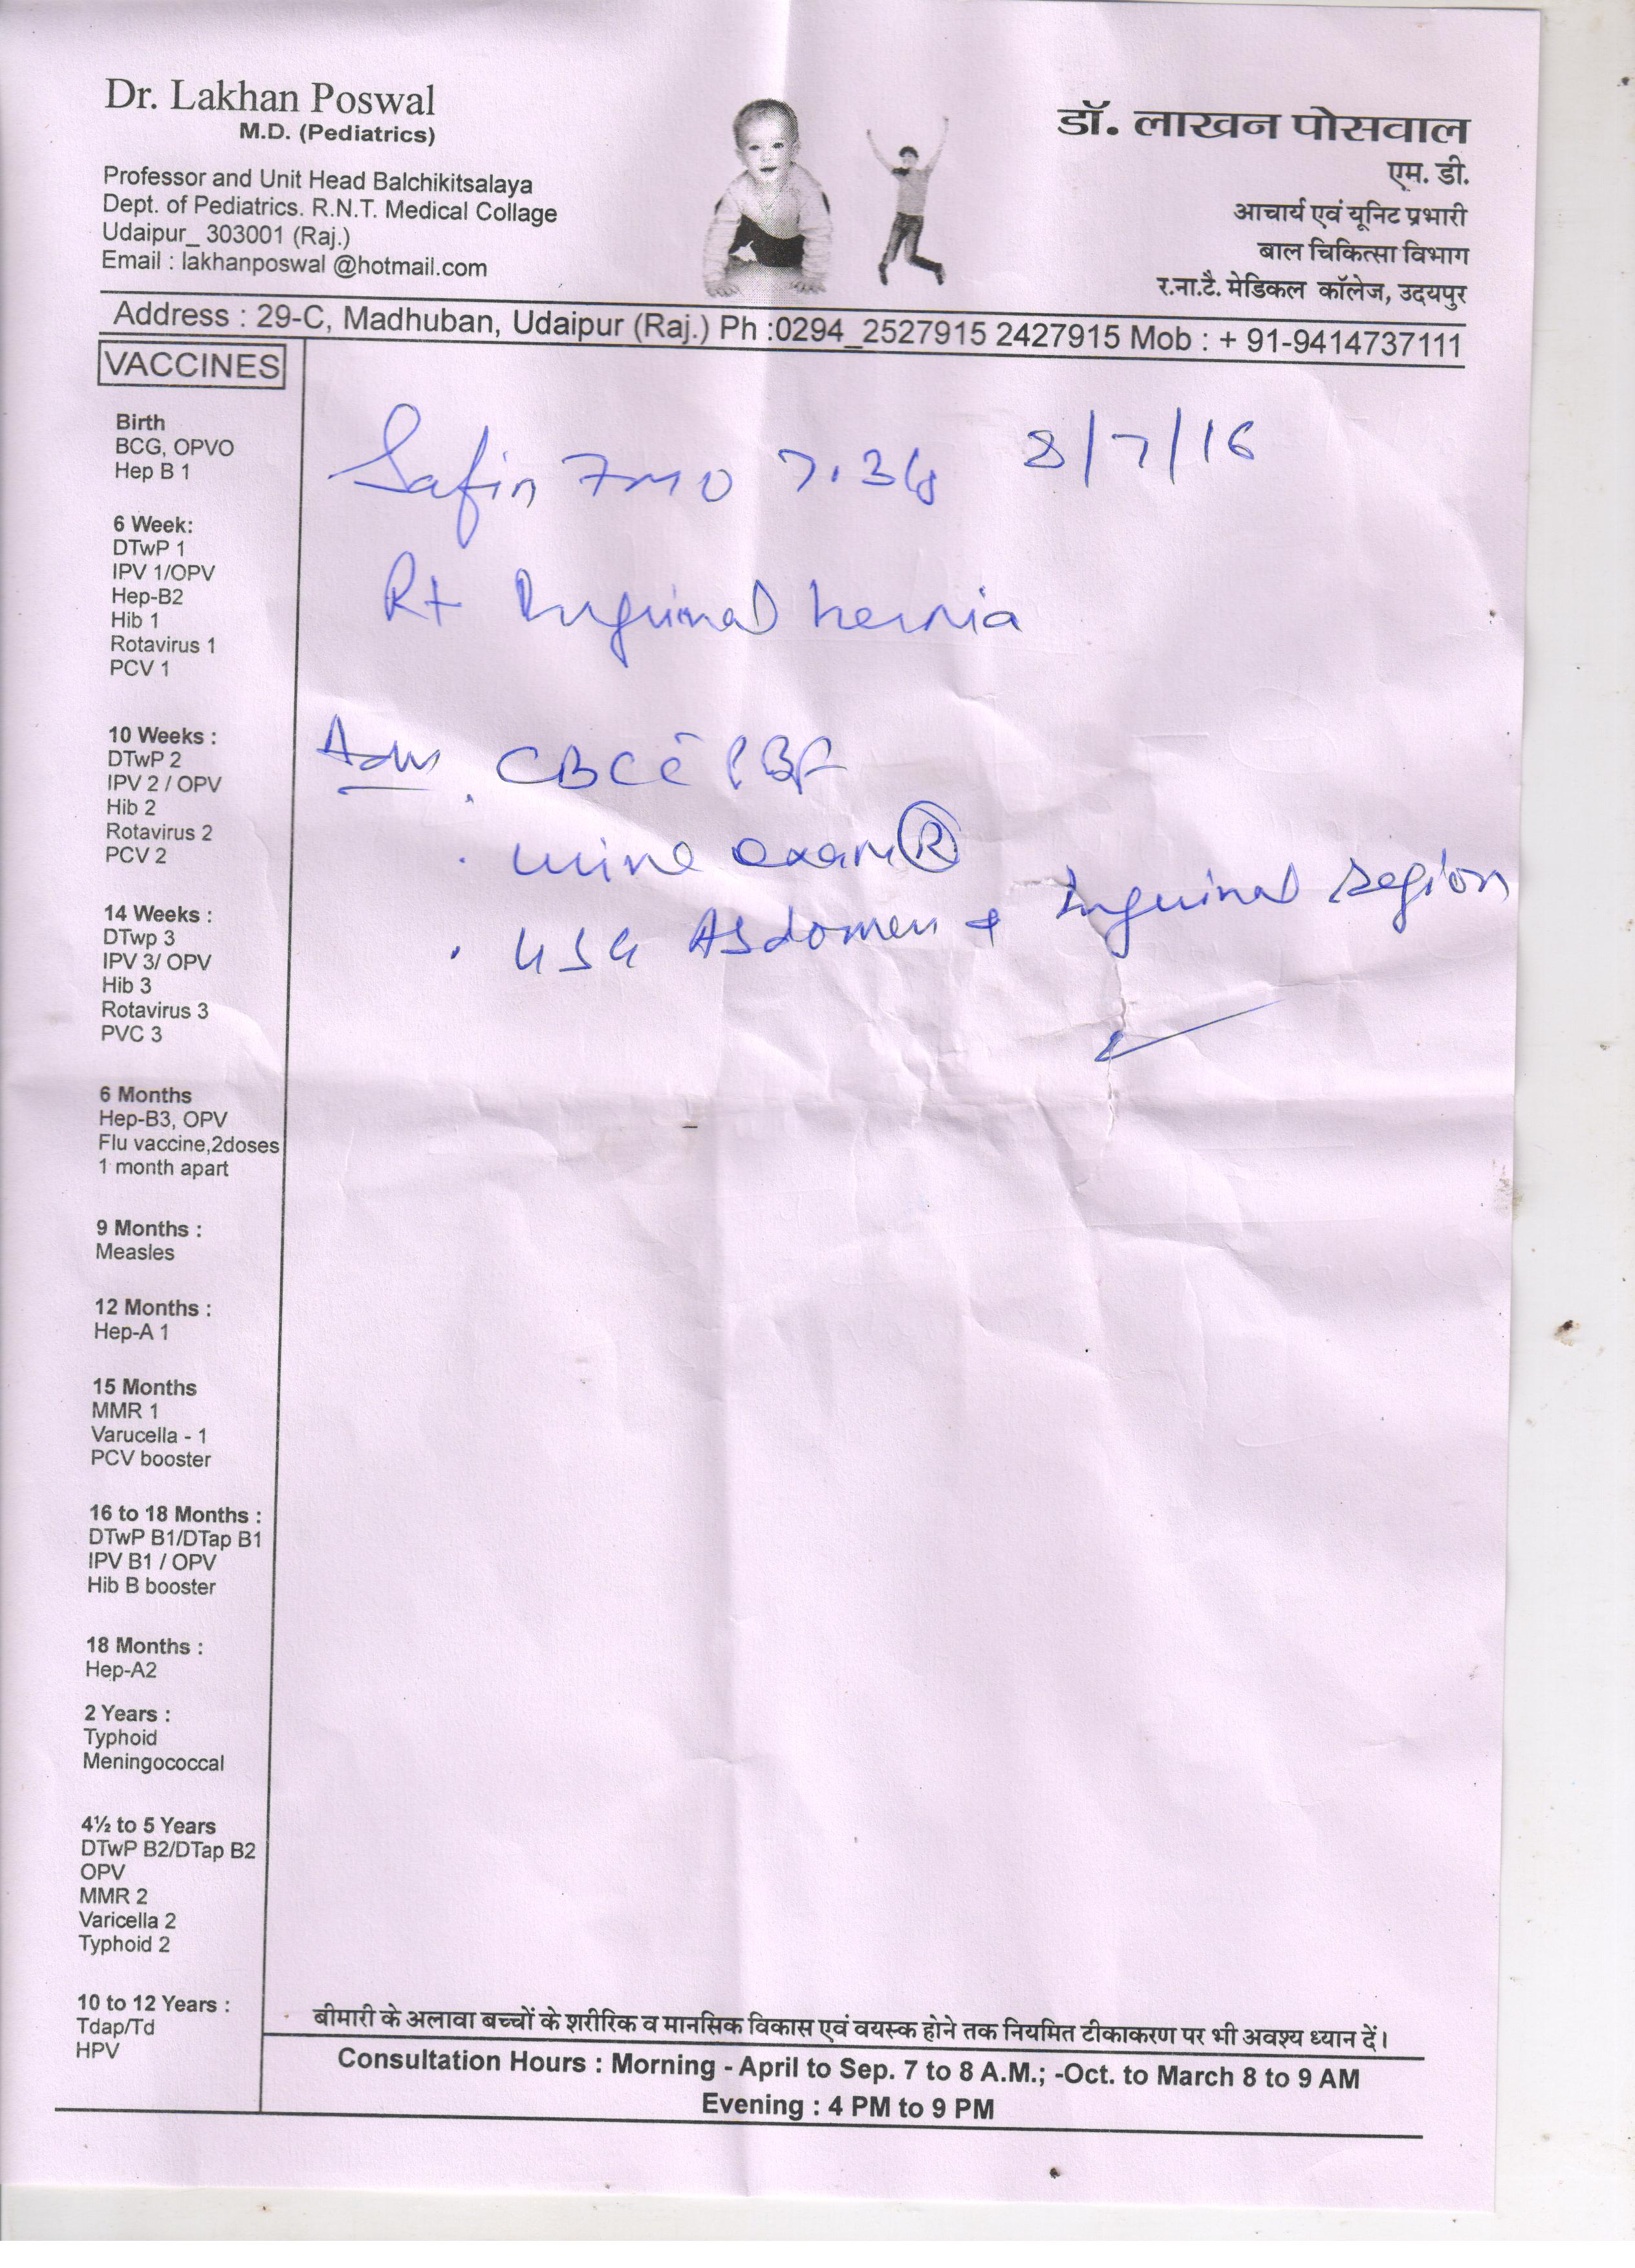 Dr. Lakhan Poswal
M.D. (Pediatrics)
Professor and Unit Head Balchikitsalaya
Dept. of Pediatrics. R.N.T. Medical Collage
Udaipur_ 303001 (Raj.)
Email : lakhanposwal @hotmail.com
डॉ. लाखन पोसवाल
एम. डी.
आचार्य एवं यूनिट प्रभारी
बाल चिकित्सा विभाग
र.ना.टै. मेडिकल कॉलेज, उदयपुर
Address : 29-C, Madhuban, Udaipur (Raj.) Ph :0294_2527915 2427915 Mob : + 91-9414737111
VACCINES
Birth
BCG, OPVO
Hep B 1
6 Week:
DTwP 1
IPV 1/OPV
Hep-B2
Hib 1
Rotavirus 1
PCV 1
10 Weeks :
DTwP 2
IPV 2 / OPV
Hib 2
Rotavirus 2
PCV 2
14 Weeks :
DTwp 3
IPV 3/ OPV
Hib 3
Rotavirus 3
PVC 3
6 Months
Hep-B3, OPV
Flu vaccine,2doses
1 month apart
9 Months :
Measles
12 Months :
Hep-A 1
15 Months
MMR 1
Varucella - 1
PCV booster
16 to 18 Months :
DTwP B1/DTap B1
IPV B1 / OPV
Hib B booster
18 Months :
Hep-A2
2 Years :
Typhoid
Meningococcal
4½ to 5 Years
DTwP B2/DTap B2
OPV
MMR 2
Varicella 2
Typhoid 2
10 to 12 Years :
Tdap/Td
HPV
Safin 7mo 8/7/16
Rt Inguinal hernia
Adv . CBC c̄ PBF
. urine exam Ⓡ
. USG Abdomen & Inguinal region
बीमारी के अलावा बच्चों के शरीरिक व मानसिक विकास एवं वयस्क होने तक नियमित टीकाकरण पर भी अवश्य ध्यान दें।
Consultation Hours : Morning - April to Sep. 7 to 8 A.M.; -Oct. to March 8 to 9 AM
Evening : 4 PM to 9 PM